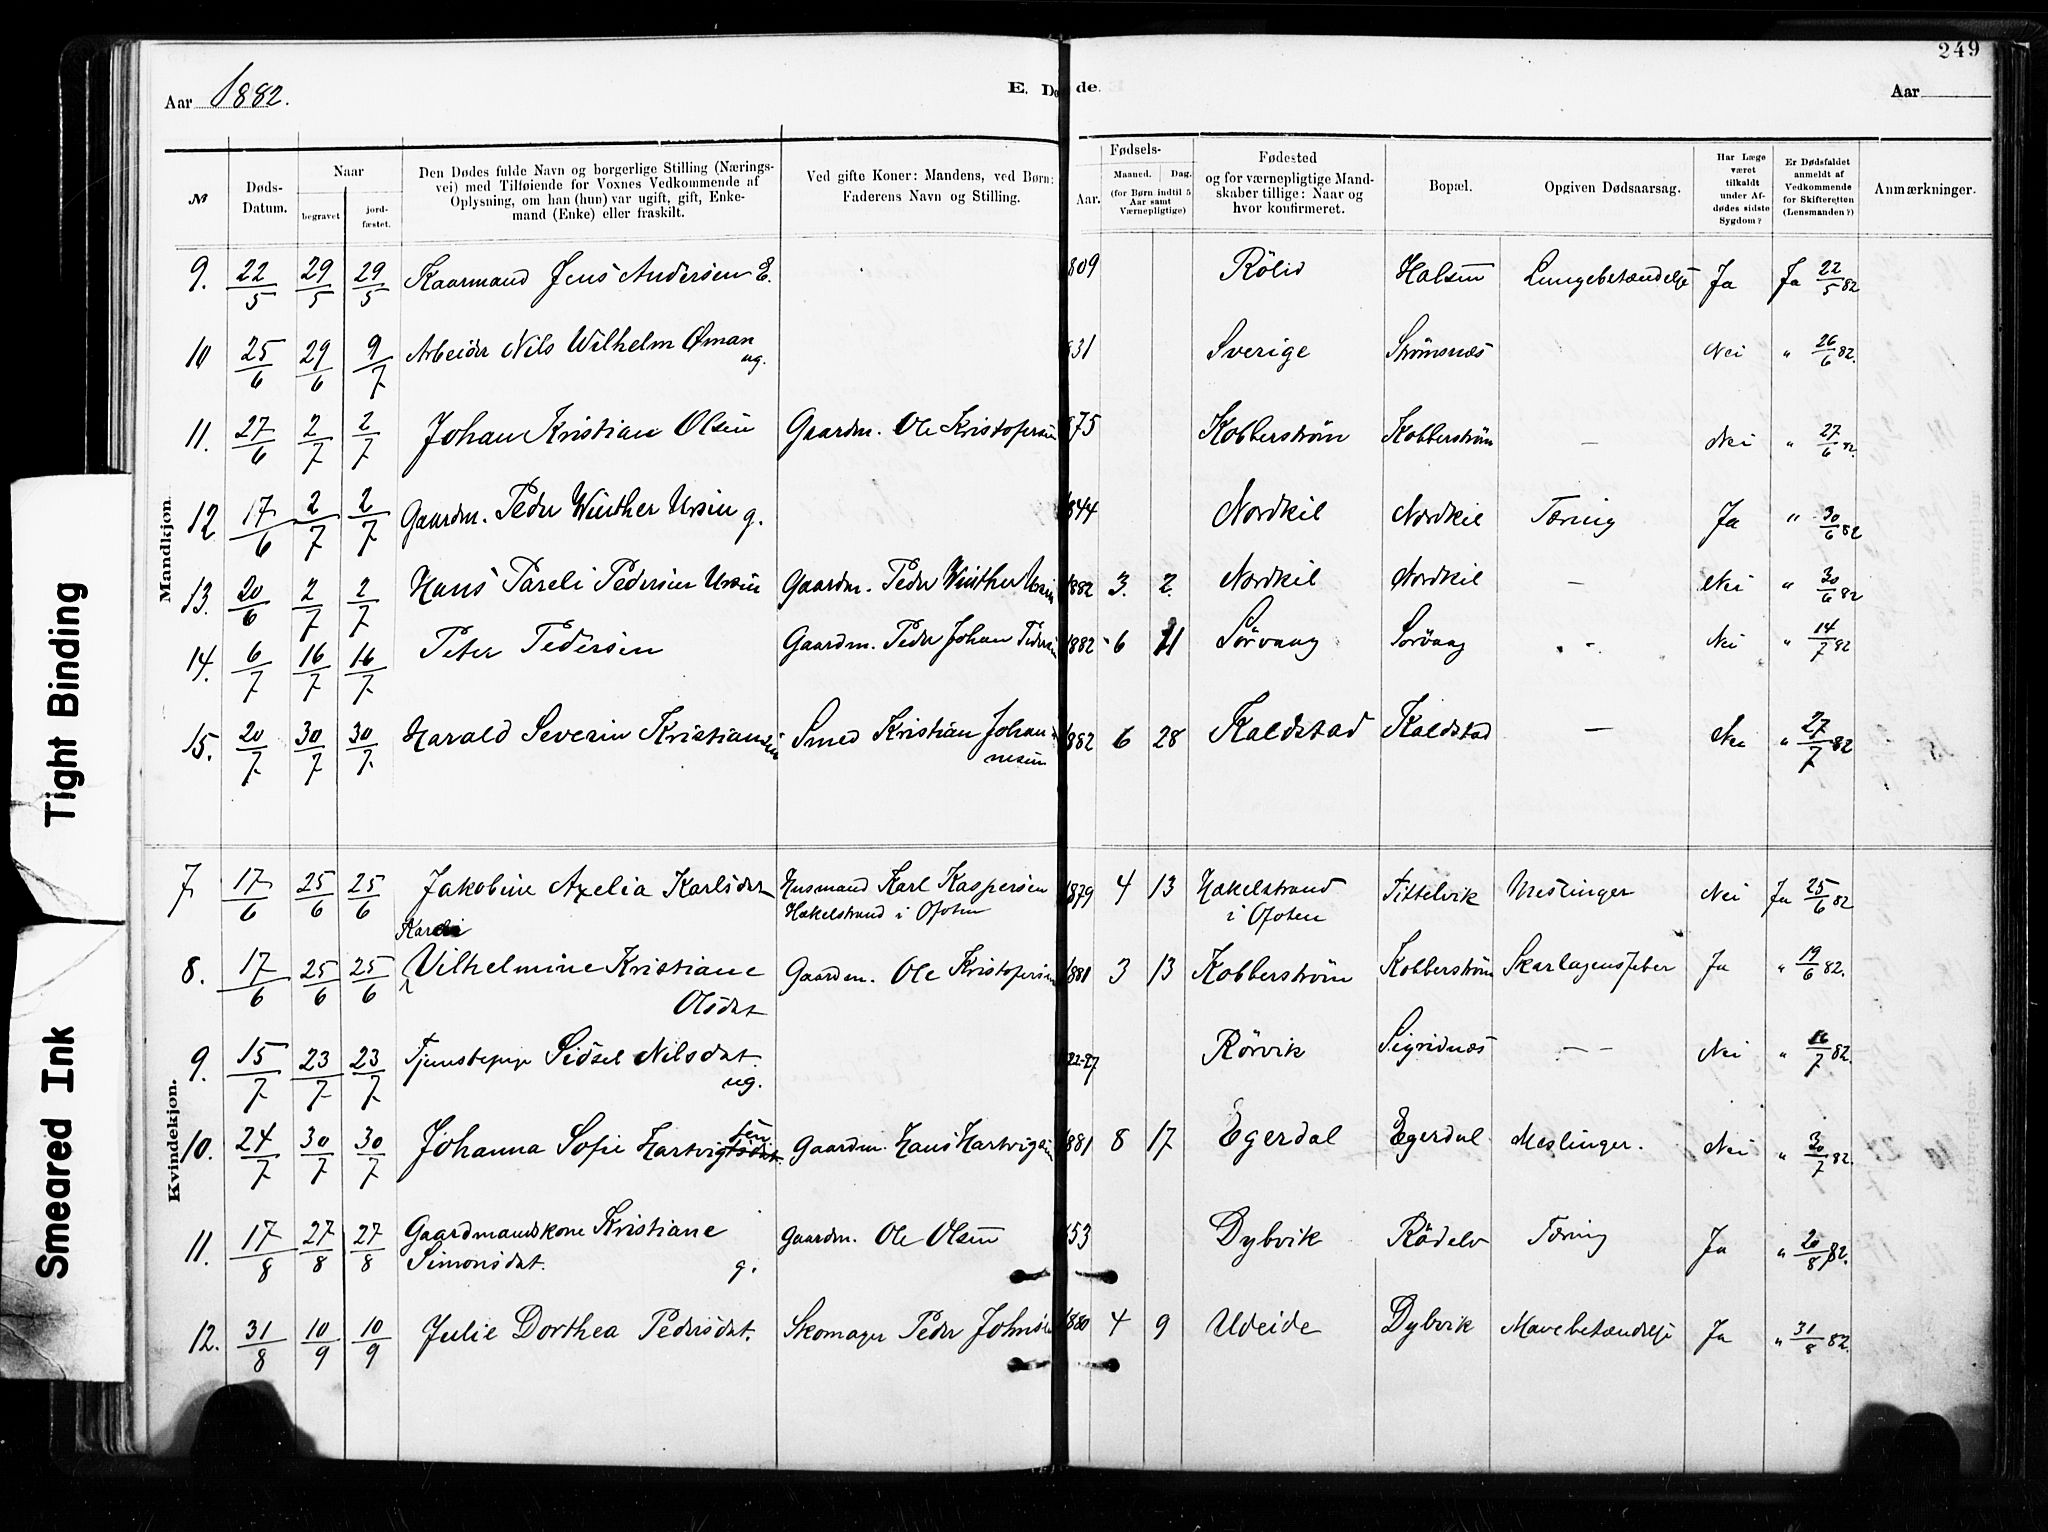 249
Aar 1882. E. Dø de. Aar
№ Døds-Datum. Naar begravet jordfæstet. Den Dødes fulde Navn og borgerlige Stilling (Næringsvei) med Tilføiende for Voxnes Vedkommende af Oplysning, om han (hun) var ugift, gift, Enkemand (Enke) eller fraskilt. Ved gifte Koner: Mandens, ved Børn: Faderens Navn og Stilling. Aar. Fødsels- Maaned. Dag. (for Børn indtil 5 Aar samt Værnepligtige) Fødested og for værnepligtige Mandskaber tillige: Naar og hvor konfirmeret. Bopæl. Opgiven Dødsaarsag. Har Læge været tilkaldt under Afdødes sidste Sygdom? Er Dødsfaldet anmeldt af Vedkommende for Skifteretten (Lensmanden?) Anmærkninger.
Mandkjøn.
9. 22/5 29/5 29/5 Kaarmand Jens Andersen E. 809 Rölid Halsen Lungebetændelse Ja Ja 22/5 82
10 25/6 29/6 9/7 Arbeider Nils Wilhelm Øman ug. 31 Sverige Strömsnæs Nei " 26/6 82.
11. 27/6 2/7 2/7 Johan Kristian Olsen Gaardm. Ole Kristofersen 75 Kobberström Kobberström — Nei " 27/6 82.
12 17/6 2/7 2/7 Gaardm. Peder Winther Ursin g. 844 Nordkil Nordkil Tæring Ja " 30/6 82
13. 20/6 2/7 2/7 Hans Pareli Pedersen Ursin Gaardm. Peder Winther Ursin 1882 3. 2. Nordkil Nordkil — Nei " 30/6 82
14. 6/7 16/7 16/7 Peter Pedersen Gaardm. Peder Johan Pedersen 1882 6 11 Sörvaag Sörvaag - Nei " 14/7 82
15. 20/7 30/7 30/7 Harald Severin Kristiansen Smed Kristian Johannesen 1882 6 28 Kaldstad Kaldstad — Nei " 27/7 82
Kvindekjøn.
7 17/6 25/6 25/6 Jakobine Axelia Karlsdat Husmand Karl Kaspersen Hækelstrand i Ofoten 1879 4 13 Hækelstrand i Ofoten Tittelvik Meslinger Nei Ja 25/6 82
8. 17/6 25/6 25/6 Vilhelmine Kristiane Olsdat Gaardm. Ole Kristofersen 1881 3 13 Kobberström Kobberström Skarlagensfeber Ja " 19/6 82.
9. 15/7 23/7 23/7 Tjenestepige Sidsel Nilsdat. ug. 22-27 Rörvik Sigridnæs — Nei " 16/7 82.
10. 24/7 30/7 30/7 Johanna Sofie Hartvigsen Gaardm. Hans Hartvigsen 1881 8 17 Egerdal Egerdal Meslinger. Nei " 30/7 82.
11. 17/8 27/8 27/8 Gaardmandskone Kristiane Simonsdat. g. Gaardm. Ole Olsen 53 Dybvik Rödelv Tæring Ja " 20/8 82.
12. 31/8 10/9 10/9 Julie Dorthea Pedersdat. Skomager Peder Johnsen 1880 4 9 Udeide Dybvik Mavebetændelse Ja " 31/8 82.
Tight Binding
Smeared Ink